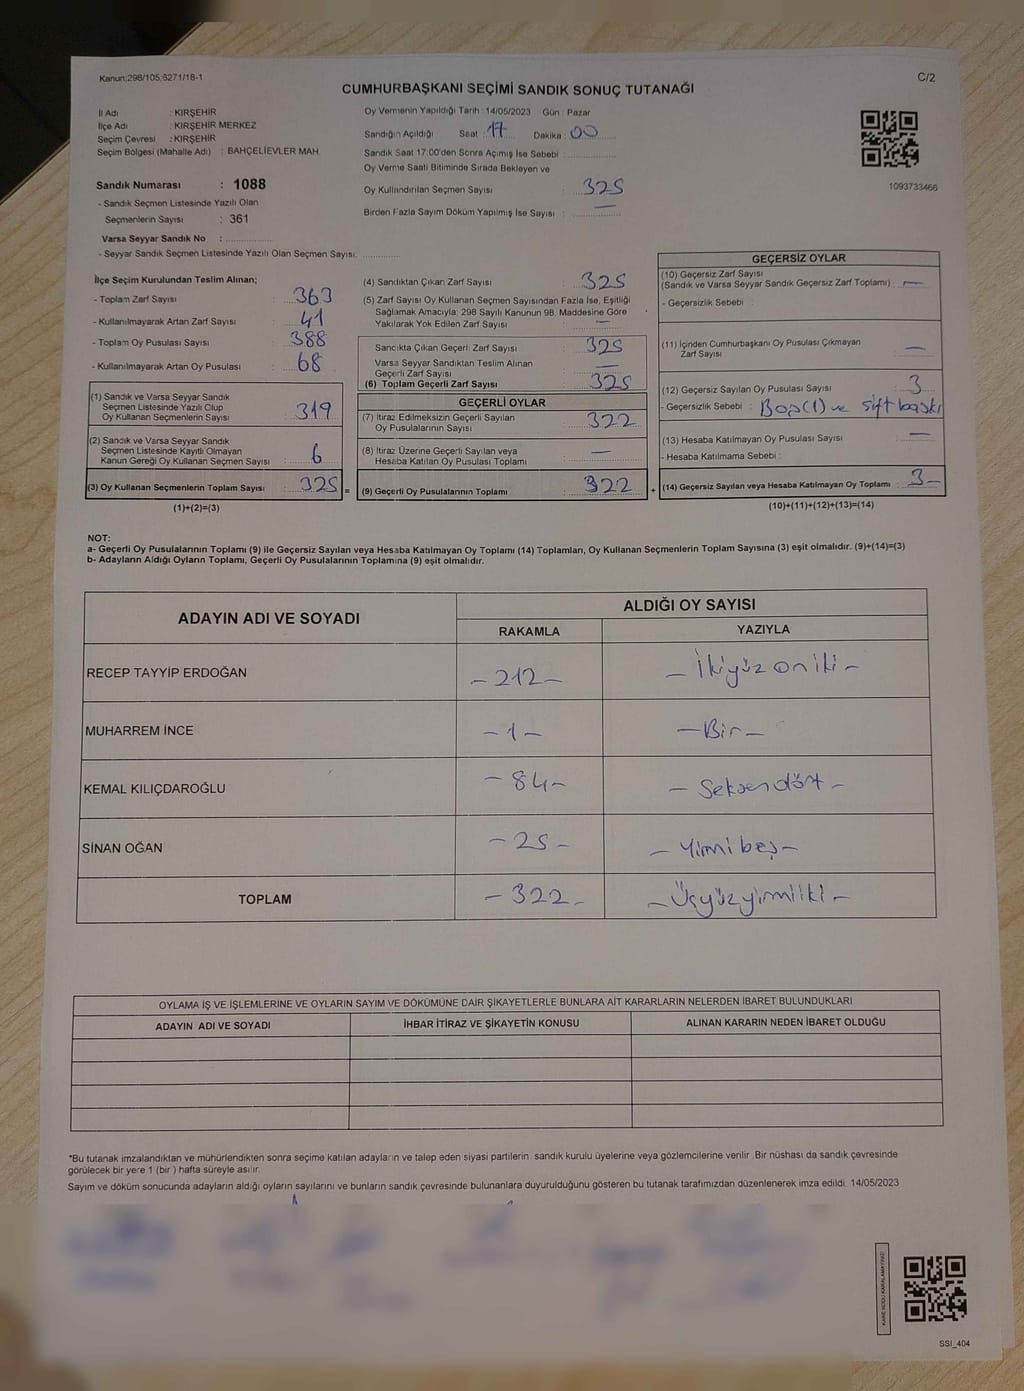 Kanun;298/105,6271/18-1
C/2
CUMHURBAŞKANI SEÇİMİ SANDIK SONUÇ TUTANAĞI
İl Adı : KIRŞEHİR
İlçe Adı : KIRŞEHİR MERKEZ
Seçim Çevresi : KIRŞEHİR
Seçim Bölgesi (Mahalle Adı) : BAHÇELİEVLER MAH.
Sandık Numarası : 1088
- Sandık Seçmen Listesinde Yazılı Olan
Seçmenlerin Sayısı : 361
Varsa Seyyar Sandık No :
- Seyyar Sandık Seçmen Listesinde Yazılı Olan Seçmen Sayısı:
Oy Vermenin Yapıldığı Tarih : 14/05/2023 Gün : Pazar
Sandığın Açıldığı Saat : 17 Dakika : 00
Sandık Saat 17:00'den Sonra Açımış İse Sebebi :
Oy Verme Saati Bitiminde Sırada Bekleyen ve
Oy Kullandırılan Seçmen Sayısı : 325
Birden Fazla Sayım Döküm Yapılmış İse Sayısı : —
1093733466
İlçe Seçim Kurulundan Teslim Alınan;
- Toplam Zarf Sayısı : 363
- Kullanılmayarak Artan Zarf Sayısı : 41
- Toplam Oy Pusulası Sayısı : 388
- Kullanılmayarak Artan Oy Pusulası : 68
(1) Sandık ve Varsa Seyyar Sandık
Seçmen Listesinde Yazılı Olup
Oy Kullanan Seçmenlerin Sayısı : 319
(2) Sandık ve Varsa Seyyar Sandık
Seçmen Listesinde Kayıtlı Olmayan
Kanun Gereği Oy Kullanan Seçmen Sayısı : 6
(3) Oy Kullanan Seçmenlerin Toplam Sayısı : 325 =
(1)+(2)=(3)
(4) Sandıktan Çıkan Zarf Sayısı : 325
(5) Zarf Sayısı Oy Kullanan Seçmen Sayısından Fazla İse, Eşitliği
Sağlamak Amacıyla; 298 Sayılı Kanunun 98. Maddesine Göre
Yakılarak Yok Edilen Zarf Sayısı : —
Sandıkta Çıkan Geçerli Zarf Sayısı : 325
Varsa Seyyar Sandıktan Teslim Alınan
Geçerli Zarf Sayısı : —
(6) Toplam Geçerli Zarf Sayısı : 325
GEÇERLİ OYLAR
(7) İtiraz Edilmeksizin Geçerli Sayılan
Oy Pusulalarının Sayısı : 322
(8) İtiraz Üzerine Geçerli Sayılan veya
Hesaba Katılan Oy Pusulası Toplamı : —
(9) Geçerli Oy Pusulalarının Toplamı : 322 +
GEÇERSİZ OYLAR
(10) Geçersiz Zarf Sayısı
(Sandık ve Varsa Seyyar Sandık Geçersiz Zarf Toplamı) : —
- Geçersizlik Sebebi :
(11) İçinden Cumhurbaşkanı Oy Pusulası Çıkmayan
Zarf Sayısı : —
(12) Geçersiz Sayılan Oy Pusulası Sayısı : 3
- Geçersizlik Sebebi : Boş(1) ve Çift baskı
(13) Hesaba Katılmayan Oy Pusulası Sayısı : —
- Hesaba Katılmama Sebebi :
(14) Geçersiz Sayılan veya Hesaba Katılmayan Oy Toplamı : 3 –
(10)+(11)+(12)+(13)=(14)
NOT:
a- Geçerli Oy Pusulalarının Toplamı (9) ile Geçersiz Sayılan veya Hesaba Katılmayan Oy Toplamı (14) Toplamları, Oy Kullanan Seçmenlerin Toplam Sayısına (3) eşit olmalıdır. (9)+(14)=(3)
b- Adayların Aldığı Oyların Toplamı, Geçerli Oy Pusulalarının Toplamına (9) eşit olmalıdır.
ADAYIN ADI VE SOYADI
ALDIĞI OY SAYISI
RAKAMLA YAZIYLA
RECEP TAYYİP ERDOĞAN – 212 – – İkiyüz oniki –
MUHARREM İNCE – 1 – – Bir –
KEMAL KILIÇDAROĞLU – 84 – – Seksendört –
SİNAN OĞAN – 25 – – Yirmi beş –
TOPLAM – 322 – – Üçyüzyirmiiki –
OYLAMA İŞ VE İŞLEMLERİNE VE OYLARIN SAYIM VE DÖKÜMÜNE DAİR ŞİKAYETLERLE BUNLARA AİT KARARLARIN NELERDEN İBARET BULUNDUKLARI
ADAYIN ADI VE SOYADI İHBAR İTİRAZ VE ŞİKAYETİN KONUSU ALINAN KARARIN NEDEN İBARET OLDUĞU
*Bu tutanak imzalandıktan ve mühürlendikten sonra seçime katılan adayların ve talep eden siyasi partilerin sandık kurulu üyelerine veya gözlemcilerine verilir. Bir nüshası da sandık çevresinde
görülecek bir yere 1 (bir ) hafta süreyle asılır.
Sayım ve döküm sonucunda adayların aldığı oyların sayılarını ve bunların sandık çevresinde bulunanlara duyurulduğunu gösteren bu tutanak tarafımızdan düzenlenerek imza edildi. 14/05/2023
KARE KODU KARALAMAYINIZ!
SSI_404